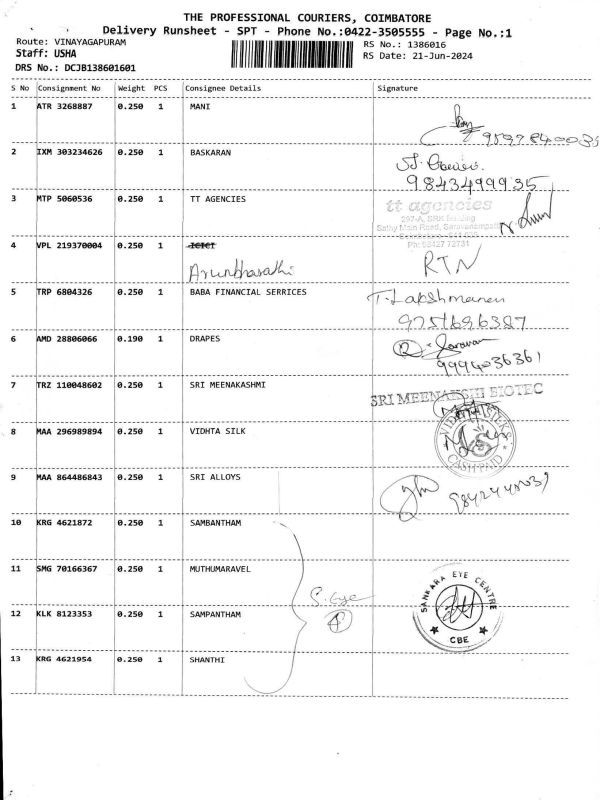 THE PROFESSIONAL COURIERS, COIMBATORE
Delivery Runsheet - SPT - Phone No.:0422-3505555 - Page No.:1
Route: VINAYAGAPURAM
RS No.: 1386016
Staff: USHA
RS Date: 21-Jun-2024
DRS No.: DCJB138601601
S No Consignment No Weight PCS Consignee Details Signature
1 ATR 3268887 0.250 1 MANI
2 IXM 303234626 0.250 1 BASKARAN
9843499935
3 MTP 5060536 0.250 1 TT AGENCIES
tt agencies
297-A, SRK Building
Sathy Main Road, Saravanampatti
4 VPL 219370004 0.250 1 ICICI
Arunbharathi RTN
5 TRP 6804326 0.250 1 BABA FINANCIAL SERRICES T. Lakshmanan
9751696387
6 AMD 28806066 0.190 1 DRAPES
Saravan
9994036361
7 TRZ 110048602 0.250 1 SRI MEENAKASHMI
SRI MEENAKSHI BIOTEC
8 MAA 296989894 0.250 1 VIDHTA SILK
CASH PAID
9 MAA 864486843 0.250 1 SRI ALLOYS
10 KRG 4621872 0.250 1 SAMBANTHAM
11 SMG 70166367 0.250 1 MUTHUMARAVEL
S. Eye
SANKARA EYE CENTRE
CBE
12 KLK 8123353 0.250 1 SAMPANTHAM
13 KRG 4621954 0.250 1 SHANTHI